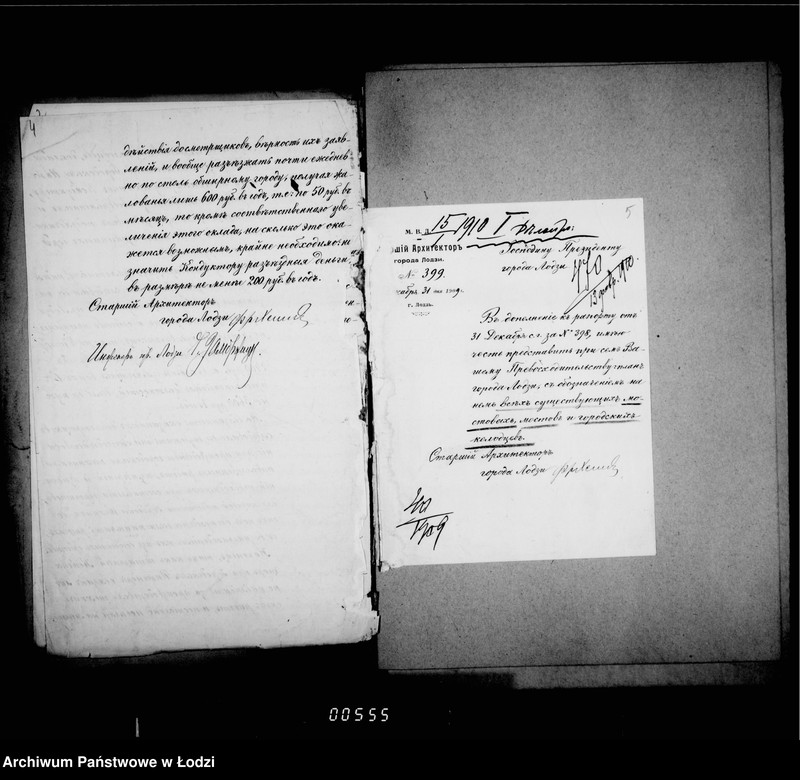 4
дѣйствія досмотрщиковъ, вѣрность ихъ заяв-
леній, и вообще разъѣзжать почти ежеднев-
но по столь обширному городу, получая жа-
лованія лишь 600 руб. въ годъ, т.е. по 50 руб. въ
мѣсяцъ, то кромѣ соотвѣтственнаго уве-
личенія этого оклада, на сколько это ока-
жется возможнымъ, крайне необходимо на-
значить Кондуктору разъѣздныя деньги
въ размѣрѣ не менѣе 200 руб. въ годъ.
Старшій Архитекторъ
города Лодзи
гор. Лодзи
5
М. В. Д.
15/1 1910 I
шій Архитекторъ
города Лодзи.
№ 399.
кабря 31 дня 1909 г.
г. Лодзь.
Господину Президенту
города Лодзи
490
13 янв. 1910
Въ дополненіе къ рапорту отъ
31 Декабря с.г. за № 398, имѣю
честь представить при семъ Ва-
шему Превосходительству планъ
города Лодзи, съ обозначеніемъ на
немъ всѣхъ существующихъ мо-
стовыхъ, мостовъ и городскихъ
колодцевъ.
Старшій Архитекторъ
города Лодзи
1909
00555
Archiwum Państwowe w Łodzi